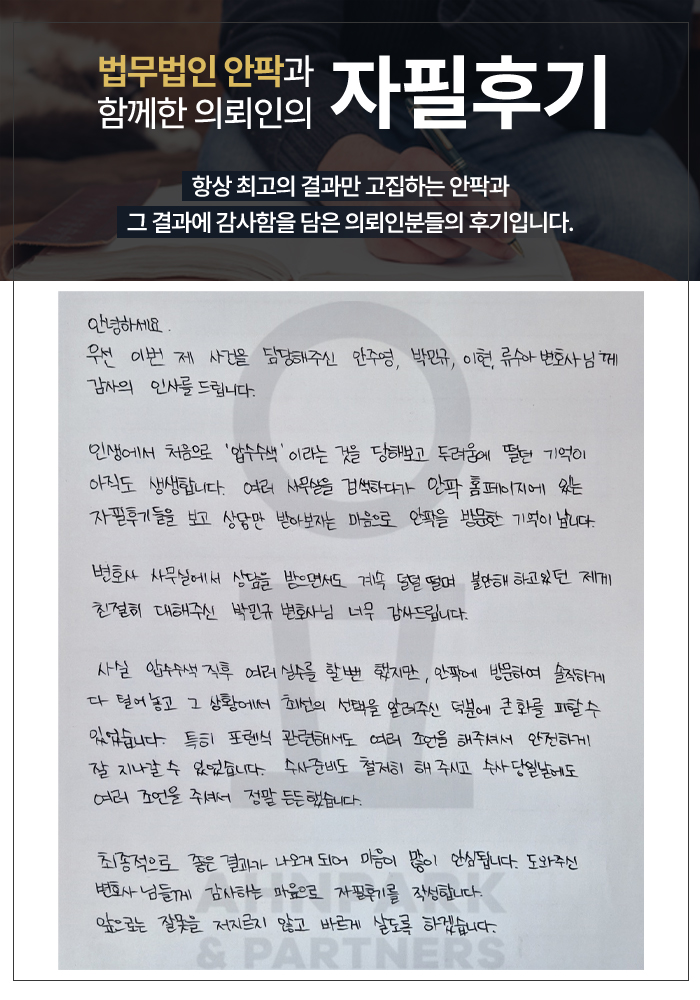 법무법인 안팍과
함께한 의뢰인의
자필후기
항상 최고의 결과만 고집하는 안팍과
그 결과에 감사함을 담은 의뢰인분들의 후기입니다.
안녕하세요.
우선 이번 제 사건을 담당해주신 안주영, 박민규, 이현, 류수아 변호사님께
감사의 인사를 드립니다.
인생에서 처음으로 '압수수색' 이라는 것을 당해보고 두려움에 떨던 기억이
아직도 생생합니다. 여러 사무실을 검색하다가 안팍 홈페이지에 있는
자필후기들을 보고 상담만 받아보자는 마음으로 안팍을 방문한 기억이 납니다.
변호사 사무실에서 상담을 받으면서도 계속 덜덜 떨며 불안해 하고있던 제게
친절히 대해주신 박민규 변호사님 너무 감사드립니다.
사실 압수수색 직후 여러 실수를 할뻔 했지만, 안팍에 방문하여 솔직하게
다 털어놓고 그 상황에서 최선의 선택을 알려주신 덕분에 큰 화를 피할 수
있었습니다. 특히 포렌식 관련해서도 여러 조언을 해주셔서 안전하게
잘 지나갈 수 있었습니다. 수사준비도 철저히 해 주시고 수사 당일날에도
여러 조언을 주셔서 정말 든든했습니다.
최종적으로 좋은 결과가 나오게 되어 마음이 많이 안심됩니다. 도와주신
변호사님들께 감사하는 마음으로 자필후기를 작성합니다.
앞으로는 잘못을 저지르지 않고 바르게 살도록 하겠습니다.
AHNPARK
& PARTNERS